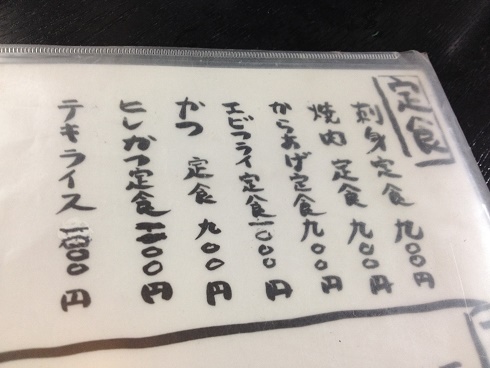 定食
刺身定食 九〇〇円
焼肉定食 九〇〇円
からあげ定食 九〇〇円
エビフライ定食 一〇〇〇円
かつ定食 九〇〇円
ヒレかつ定食 〇〇円
テキライス 〇〇円